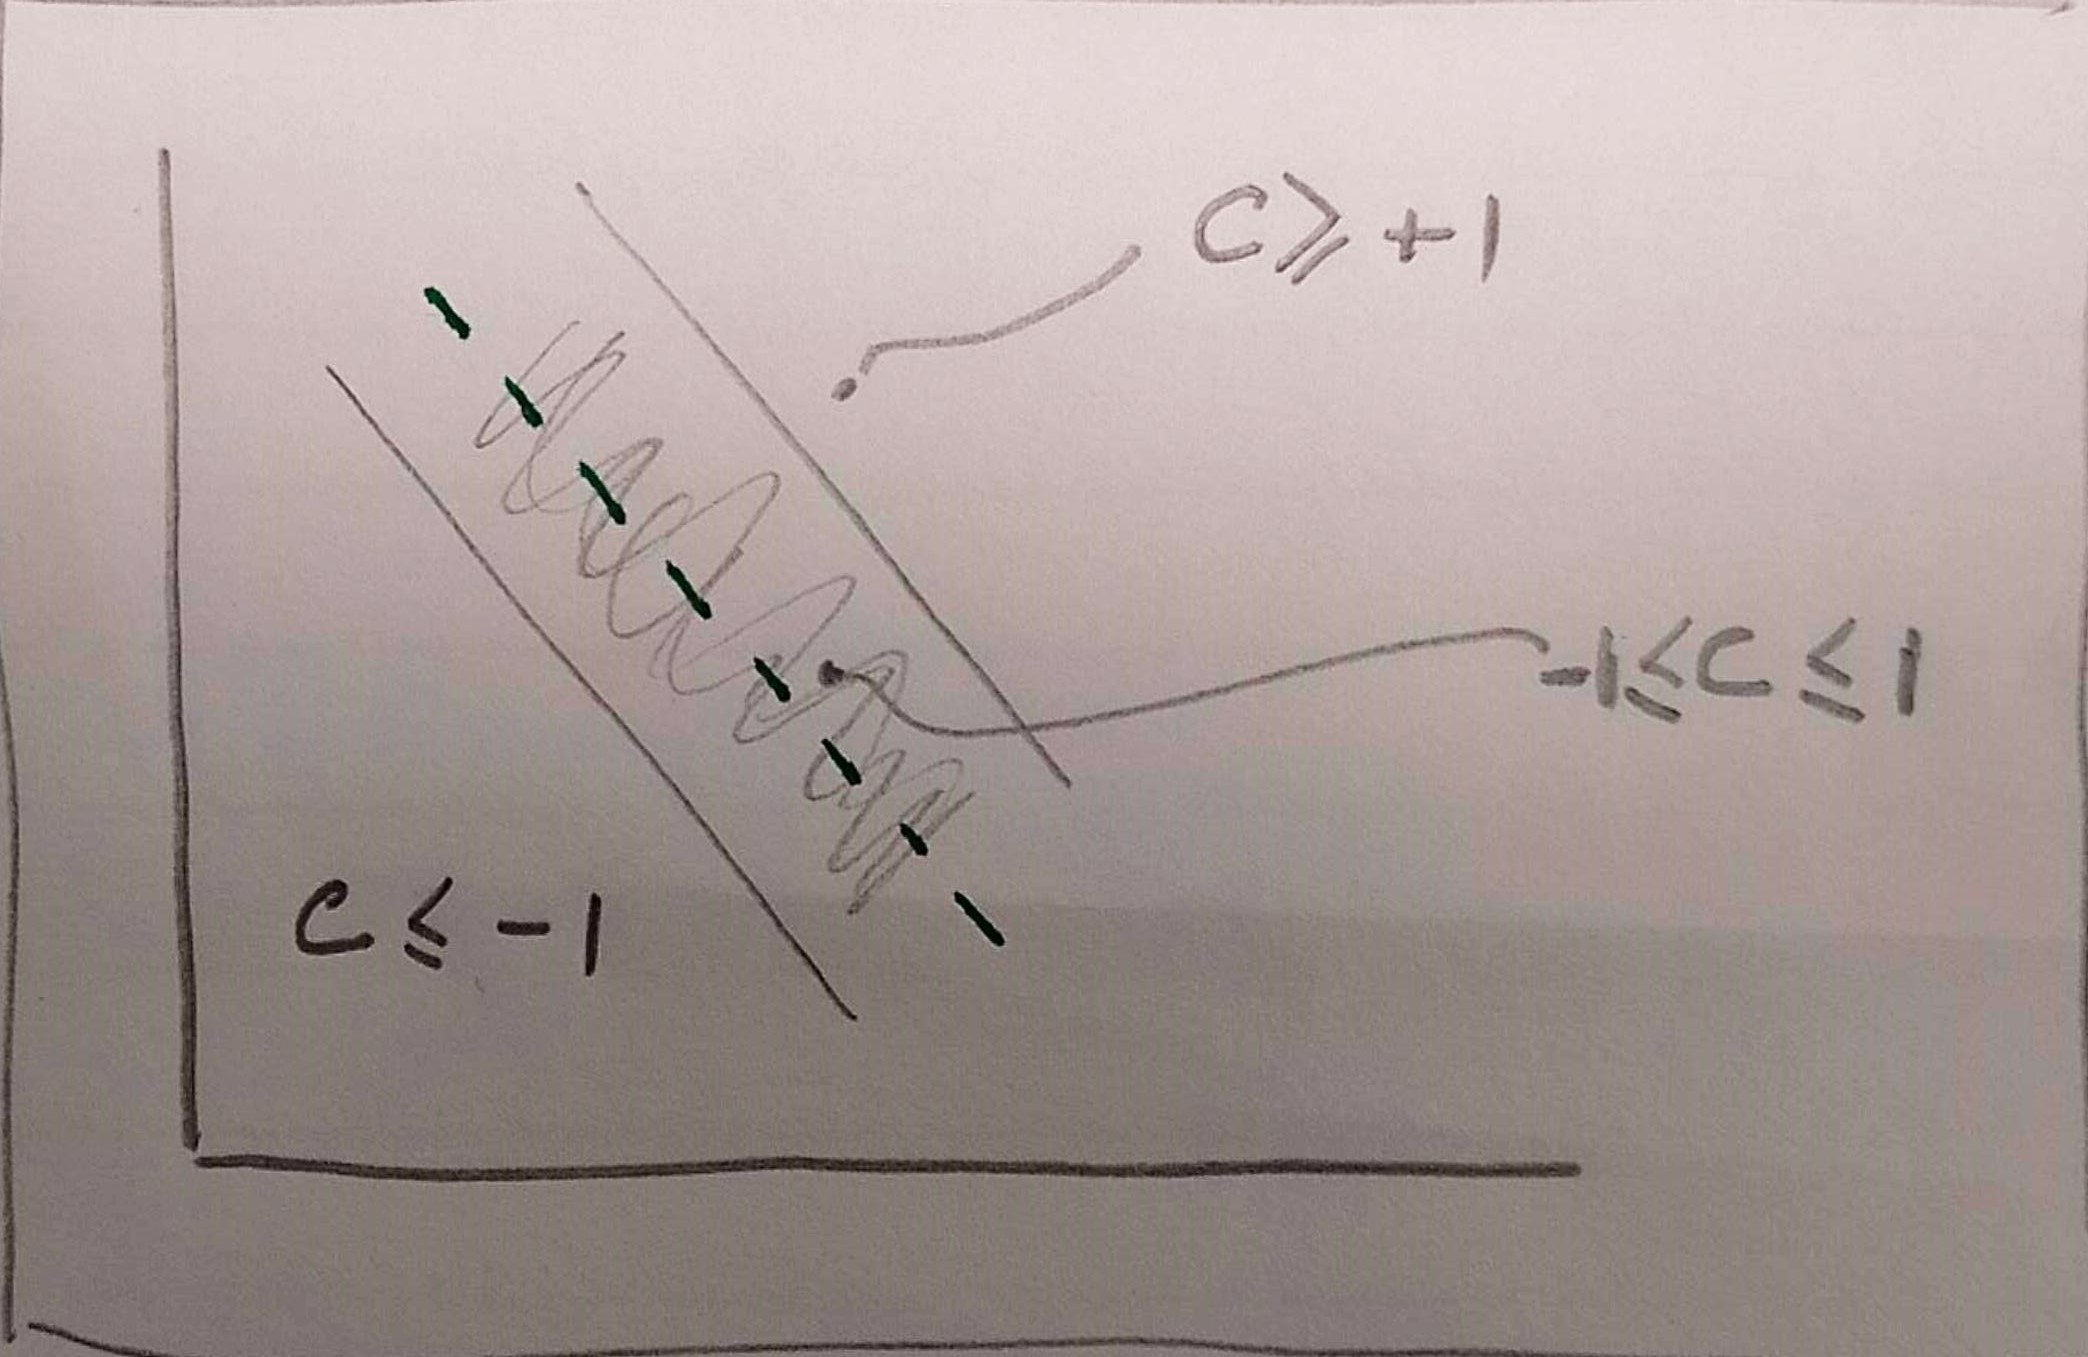 C ≥ +1
-1 ≤ C ≤ 1
C ≤ -1